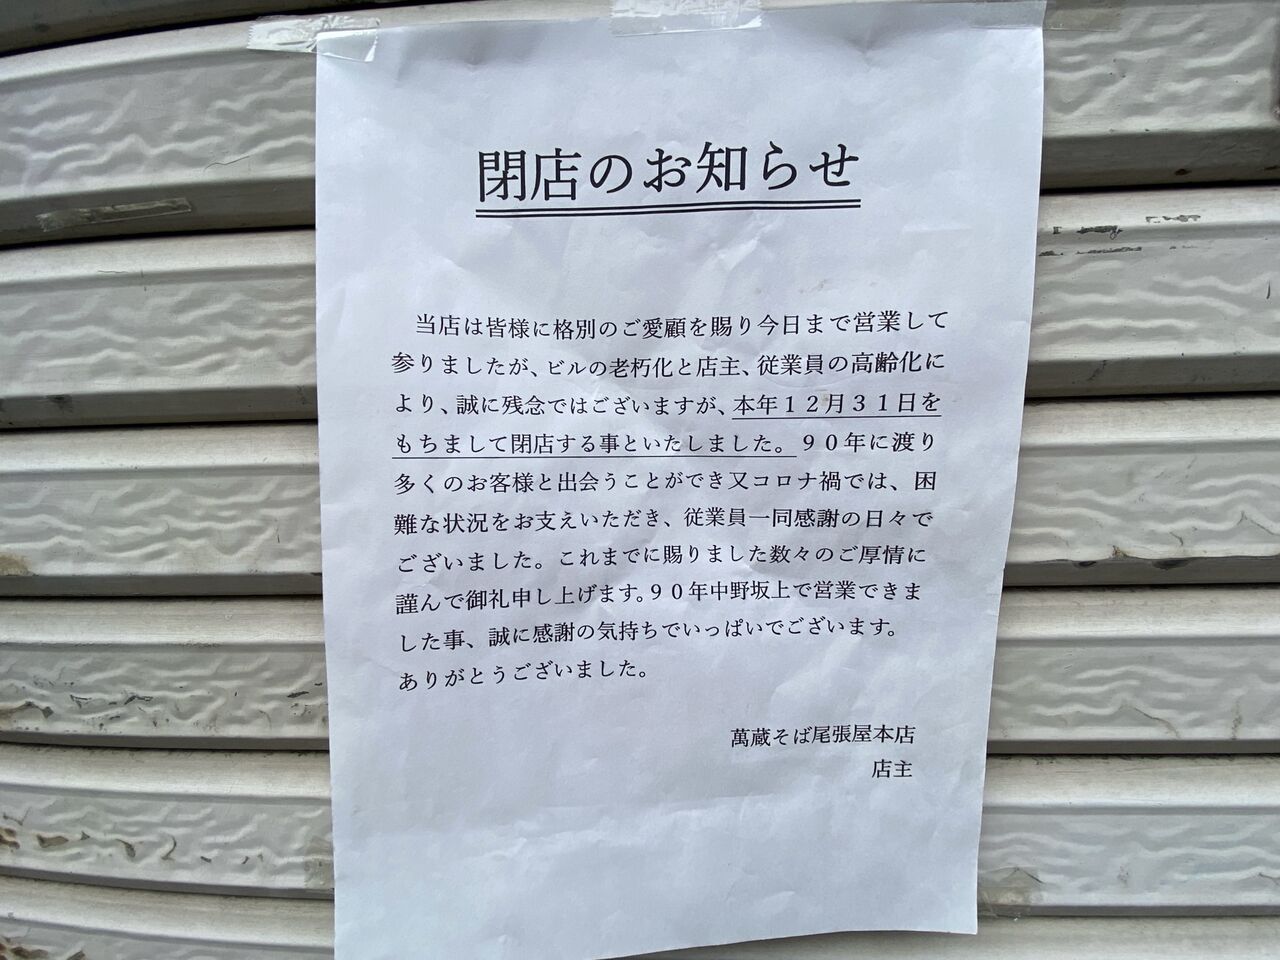 閉店のお知らせ
当店は皆様に格別のご愛顧を賜り今日まで営業して
参りましたが、ビルの老朽化と店主、従業員の高齢化に
より、誠に残念ではございますが、本年１２月３１日を
もちまして閉店する事といたしました。９０年に渡り
多くのお客様と出会うことができ又コロナ禍では、困
難な状況をお支えいただき、従業員一同感謝の日々で
ございました。これまでに賜りました数々のご厚情に
謹んで御礼申し上げます。９０年中野坂上で営業できま
した事、誠に感謝の気持ちでいっぱいでございます。
ありがとうございました。
萬蔵そば尾張屋本店
店主